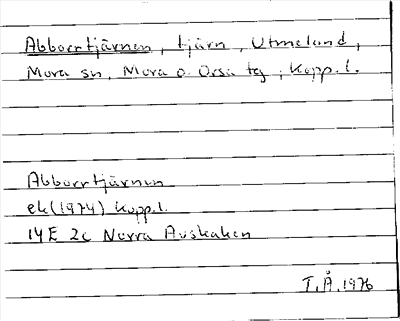 Abborrtjärnen, tjärn, Utmeland,
Mora sn, Mora o. Orsa tg, Kopp. l.
Abborrtjärnen
ek (1974) Kopp. l.
14E 2c Norra Avskaken
T. Å. 1976